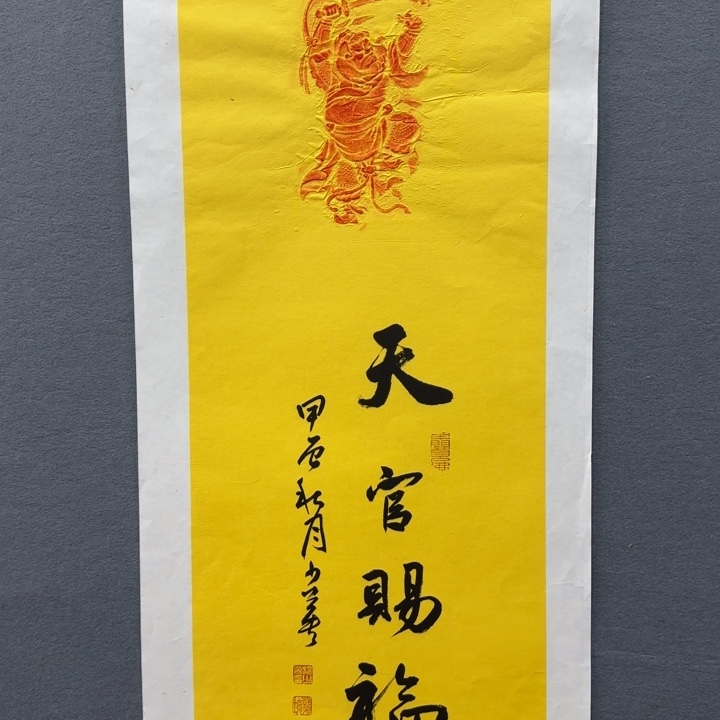 天官賜福
甲辰秋月少英